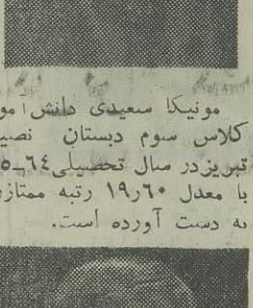 مونیکا سعیدی دانش آمو
کلاس سوم دبستان نصی
تبریز در سال تحصیلی ٦٤ـ٥
با معدل ١٩ر٦٠ رتبه ممتاز
به دست آورده است.